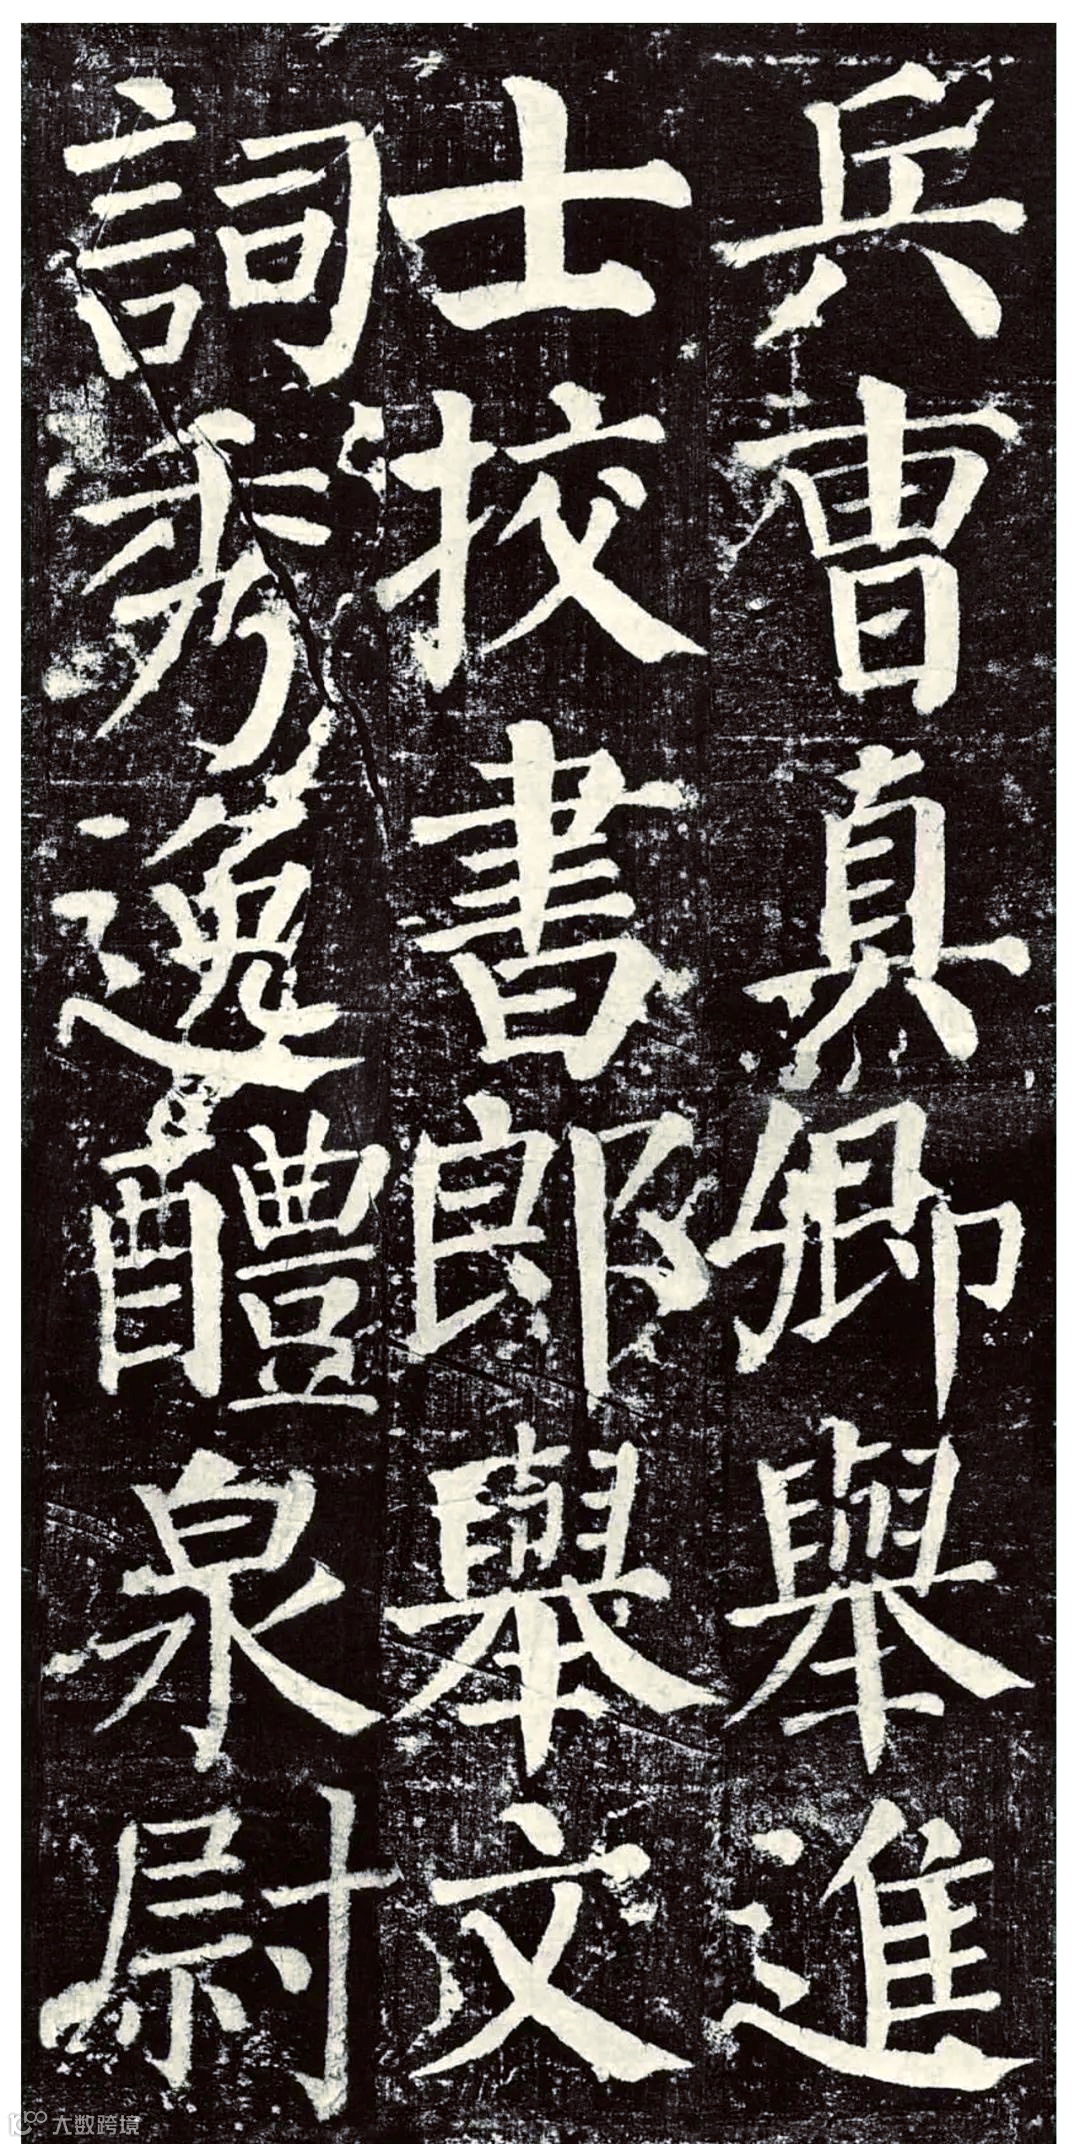 兵曹真卿舉進
士挍書郎舉文
詞秀逸醴泉尉
大数跨境